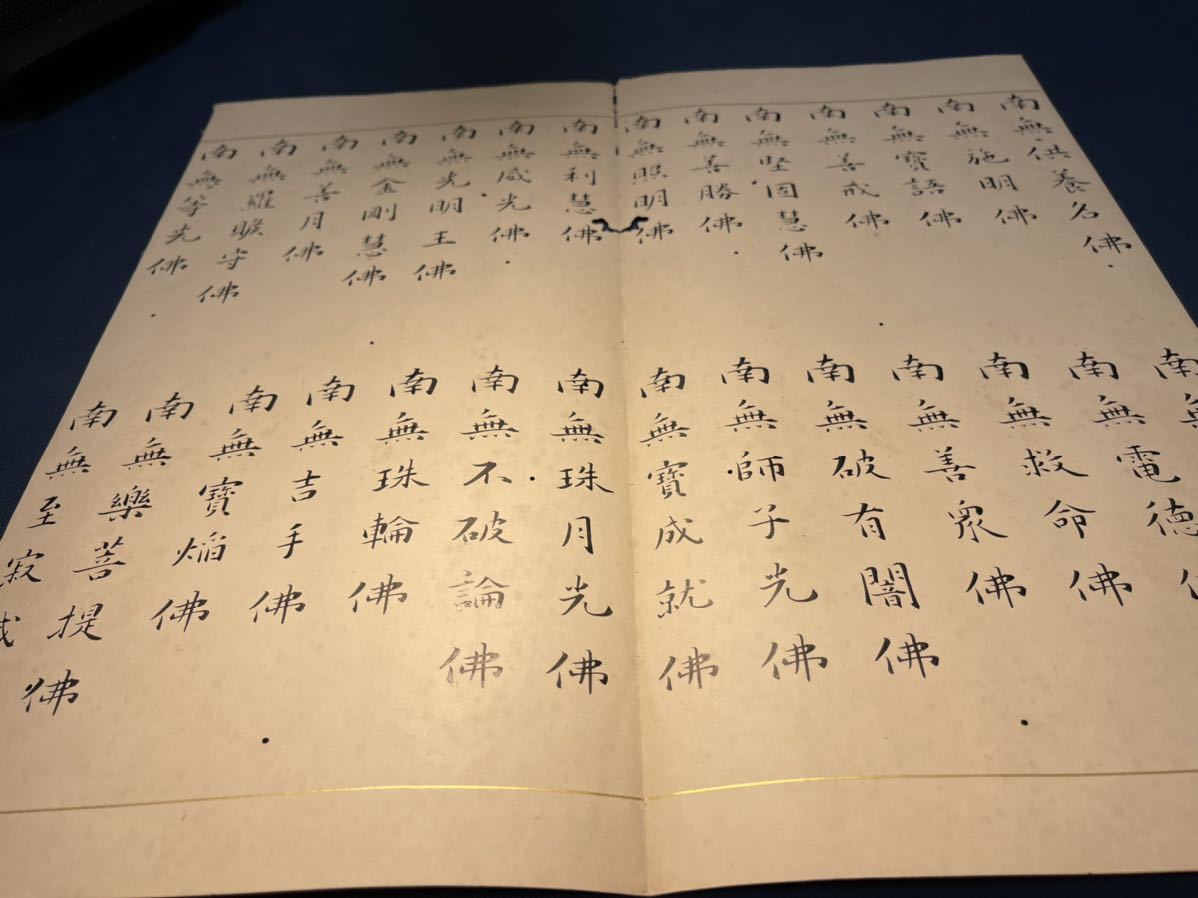 南無供養名佛
南無施明佛
南無電德
南無寶語佛
南無救命佛
南無善戒佛
南無善眾佛
南無堅固慧佛
南無破有闇佛
南無善勝佛
南無師子光佛
南無照明佛
南無寶成就佛
南無利慧佛
南無珠月光佛
南無威光佛
南無不破論佛
南無光明王佛
南無珠輪佛
南無金剛慧佛
南無吉手佛
南無善月佛
南無寶焰佛
南無羅睺守佛
南無樂菩提佛
南無等光佛
南無至寂